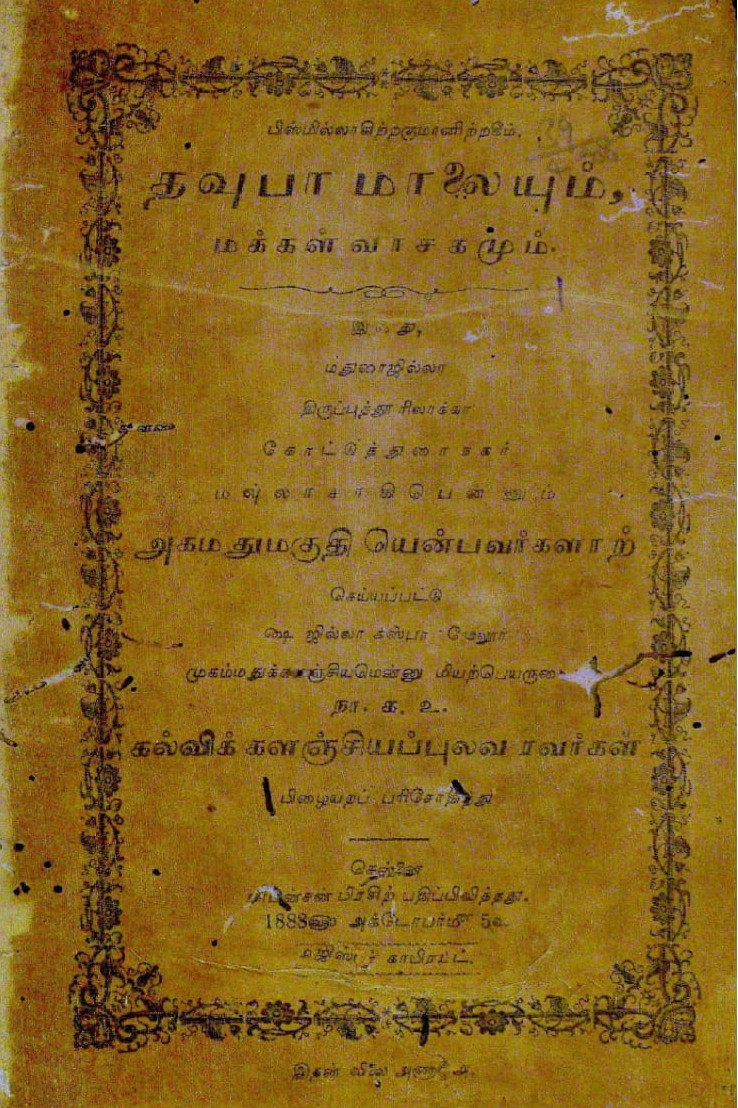 பிஸ்மில்லாகிற்றகுமானிற்றகீம்.
தவுபா மாலையும்,
மக்கள் வாசகமும்.
இஃது,
மதுரைஜில்லா
திருப்புத்தூரிலாக்கா
கோட்டுத்துரைநகர்
மவ்லாசாகிபென்னும்
அகமதுமகுதி யென்பவர்களாற்
செய்யப்பட்டு
ஷை ஜில்லா கஸ்பா மேலூர்
முகம்மதுக்களஞ்சியமென்னு மியற்பெயருடைய
நா. க. உ.
கல்விக் களஞ்சியப்புலவ ரவர்கள்
பிழையறப் பரிசோதித்து
சென்னை
பிரசிற் பதிப்பிவித்தது.
1888ளு அக்டோபர்மீ 5உ
றஜிஸ்டர் காபிரைட்.
இதன் விலை அணா அ.